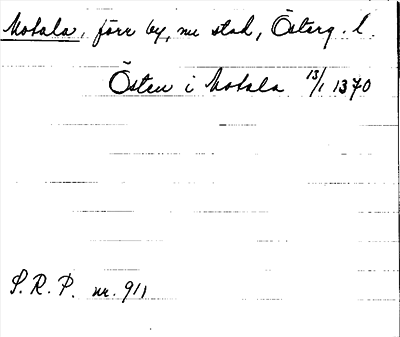 Motala, förr by, nu stad, Österg. l.
Östen i Motala 13/1 1370
S.R.P. nr. 911